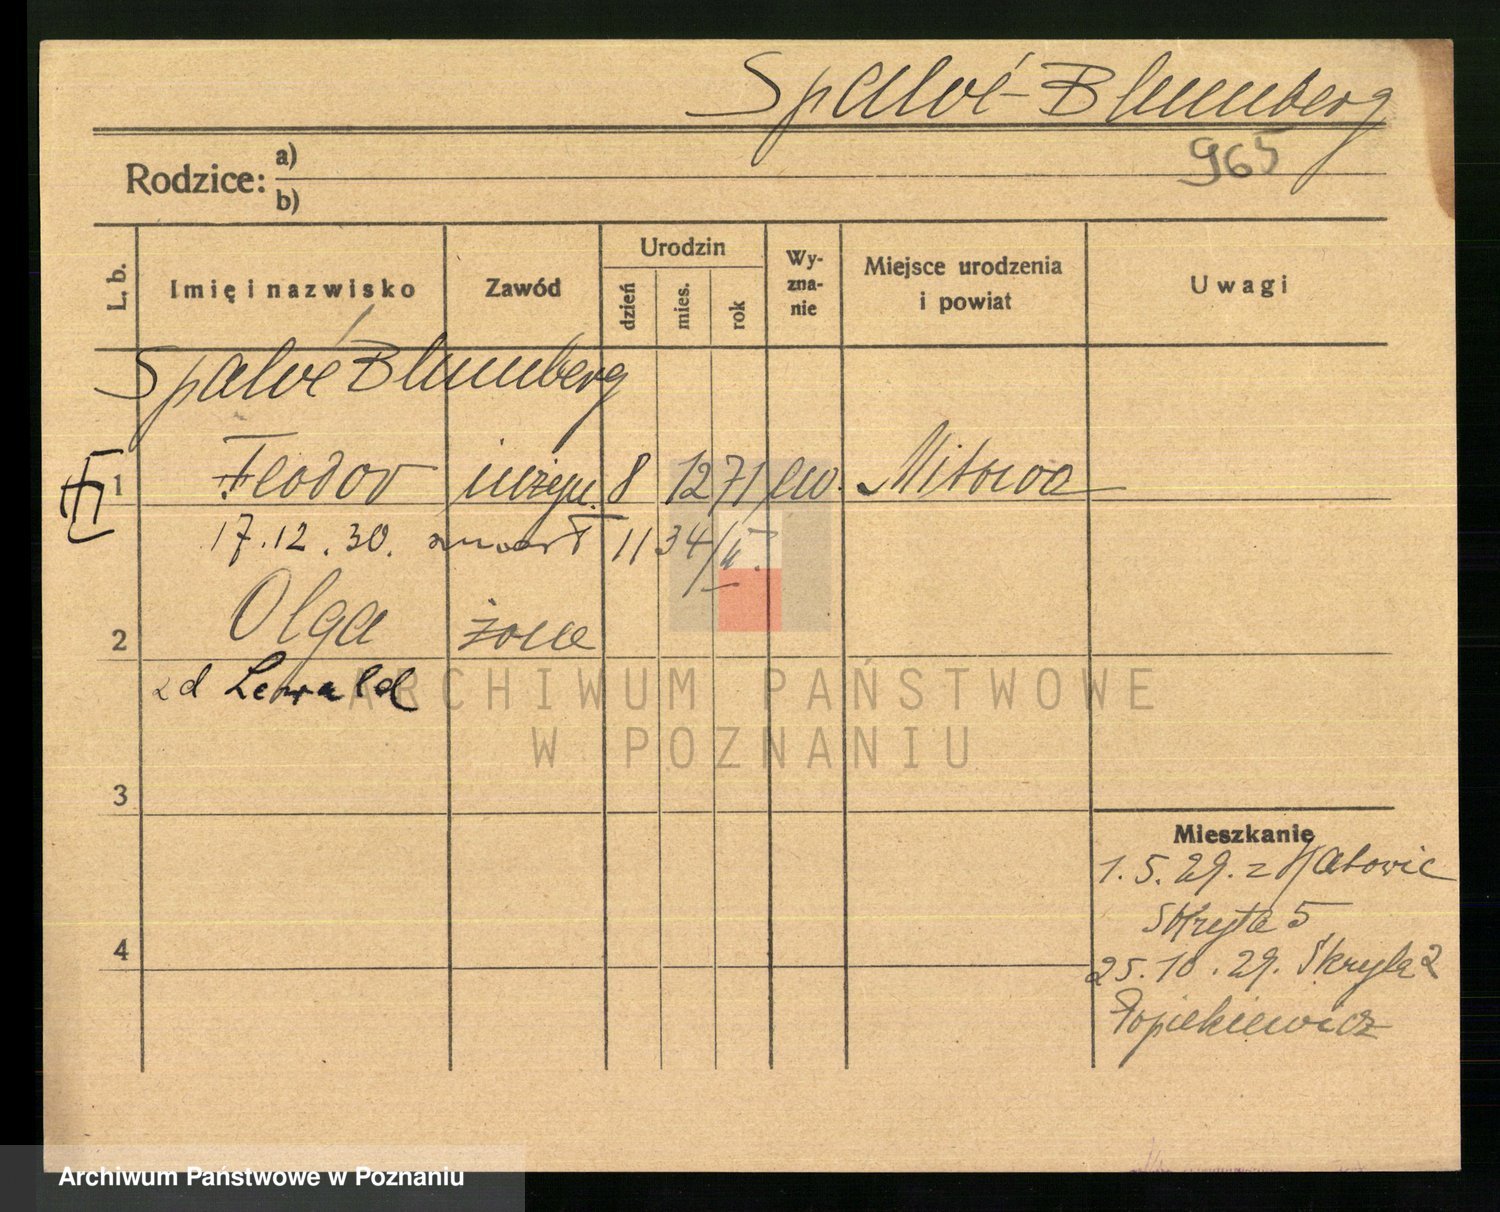 Spalvé-Blumberg
965
Rodzice: a)
b)
L. b. Imię i nazwisko Zawód Urodzin dzień mies. rok Wyznanie Miejsce urodzenia i powiat Uwagi
Spalvé Blumberg
1 Feodor inżyn. 8 12 71 ew. Mitawa
17.12.30. zmarł 1134/II.
2 Olga żona
zd Lewald
3
Mieszkanie
1.5.29. z Katowic
Skryta 5
4
25.10.29. Skryta 2
Popiekiewicz
ARCHIWUM PAŃSTWOWE
W POZNANIU
Archiwum Państwowe w Poznaniu